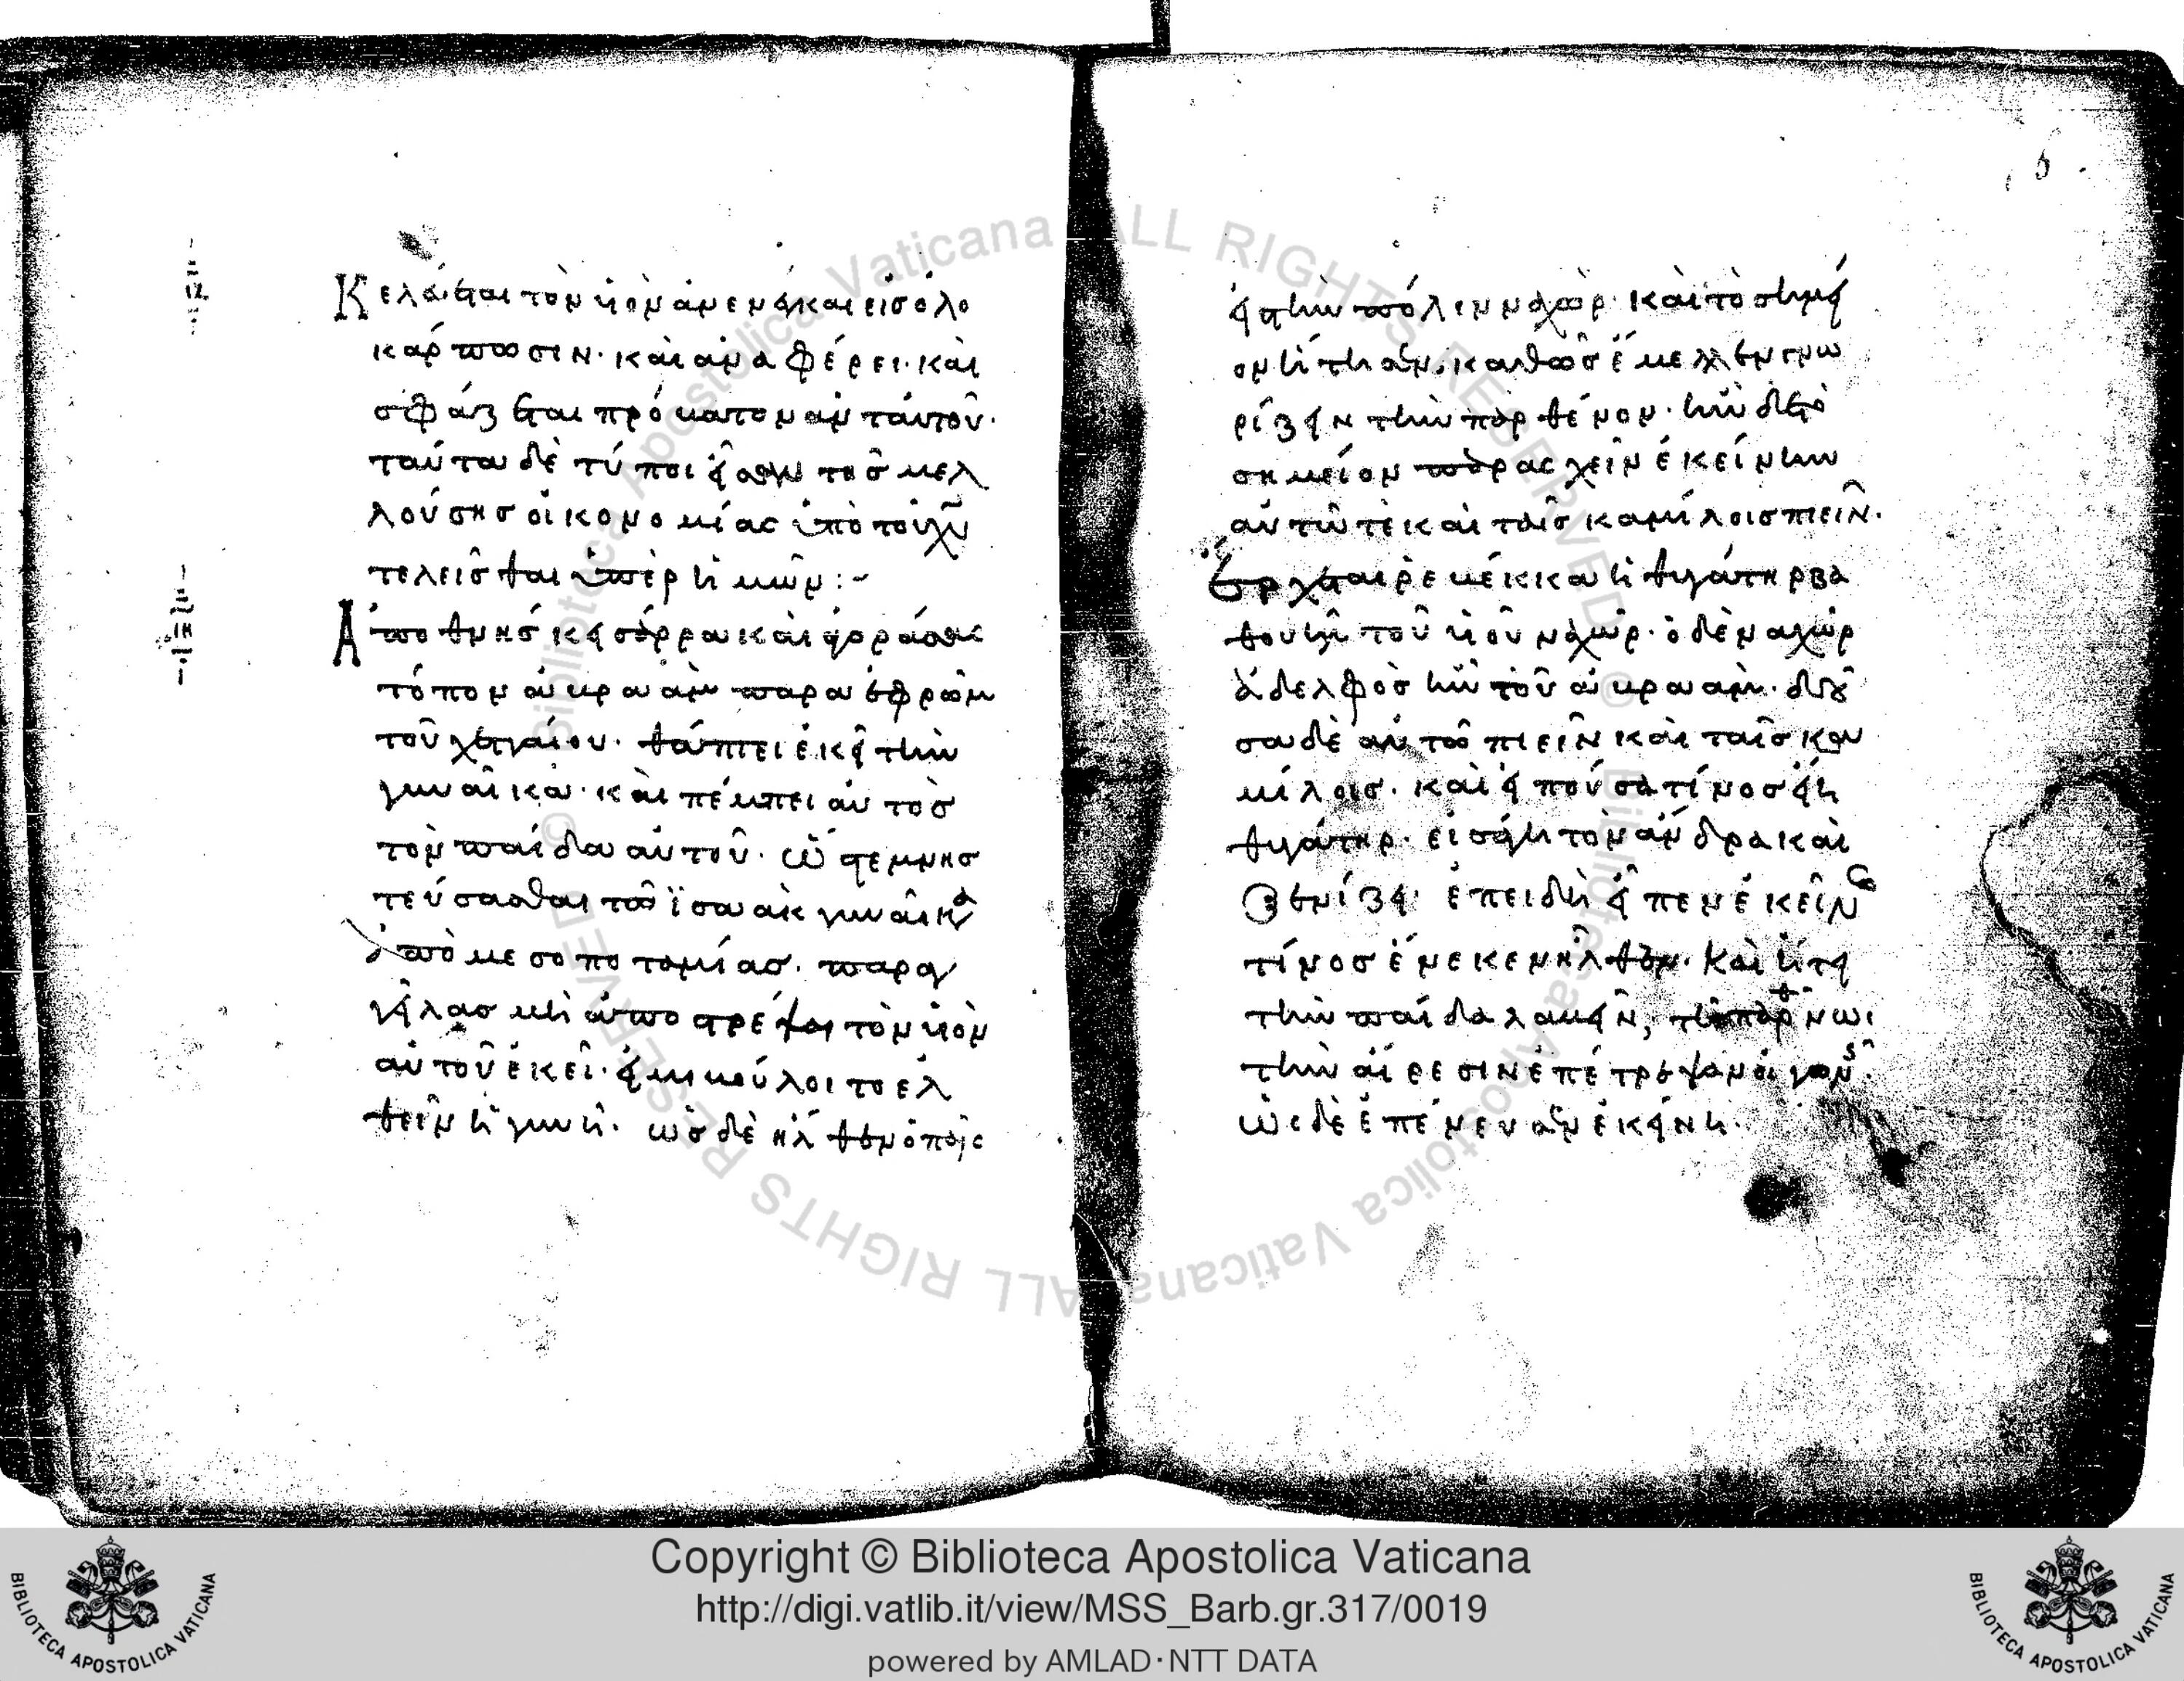 ιζ
Κελεύεται τὸν υἱὸν ἀνενέγκαι εἰς ὁλο
κάρπωσιν· καὶ ἀναφέρει· καὶ
σφάζεται πρόβατον ἀντ' αὐτοῦ·
ταῦτα δὲ τύποι ἦσαν τῆς μελ
λούσης οἰκονομίας ὑπὸ τοῦ χυ
τελεῖσθαι ὑπὲρ ἡμῶν:-
ιη
Ἀποθνήσκει σάρρα καὶ ἀγοράσας
τόπον ἀβραὰμ παρὰ ἐφρὼν
τοῦ χετταίου· θάπτει ἐκεῖ τὴν
γυναῖκα· καὶ πέμπει αὐτὸς
τὸν παῖδα αὐτοῦ· ὥστε μνησ
τεύσασθαι τῶ ϊσαὰκ γυναῖκα
ἀπὸ μεσοποταμίας· παραγ
γείλας μὴ ἀποστρέψαι τὸν υἱὸν
αὐτοῦ ἐκεῖ· εἰ μὴ βούλοιτο ἐλ
θεῖν ἡ γυνή· ὡς δὲ ἦλθεν ὁ παῖς
6
εἰς τὴν πόλιν ναχώρ· καὶ τὸ σημεῖ
ον ᾐτήσαν· καθὼς ἔμελλεν γνω
ρίζειν τὴν παρθένον· ἦν δὲ τὸ
σημεῖον παρασχεῖν ἐκείνην
αὐτῶ τὲ καὶ ταῖς καμήλοις πιεῖν·
ἔρχεται ρεβέκκα ἡ θυγάτηρ βα
θουὴλ τοῦ υἱοῦ ναχώρ· ὁ δὲ ναχώρ
ἀδελφὸς ἦν τοῦ ἀβραάμ· δοῦ
σα δὲ αὐτῶ πιεῖν καὶ ταῖς κα
μίλοις· καὶ εἰποῦσα τίνος εἴη
θυγάτηρ· εἰσάγει τὸν ἄνδρα καὶ
ξενίζει· ἐπειδὴ εἶπεν ἐκεῖνος
τίνος ἕνεκεν ἦλθεν· καὶ ᾔτει
τὴν παῖδα λαβεῖν, τῆ παρθένωι
τὴν αἵρεσιν ἐπέτρεψαν οἱ γονεῖς·
ὡς δὲ ἐπένευσεν ἐκείνη·
Copyright © Biblioteca Apostolica Vaticana
http://digi.vatlib.it/view/MSS_Barb.gr.317/0019
powered by AMLAD·NTT DATA
BIBLIOTECA APOSTOLICA VATICANA
BIBLIOTECA APOSTOLICA VATICANA
© Biblioteca Apostolica Vaticana ALL RIGHTS RESERVED
© Biblioteca Apostolica Vaticana ALL RIGHTS RESERVED